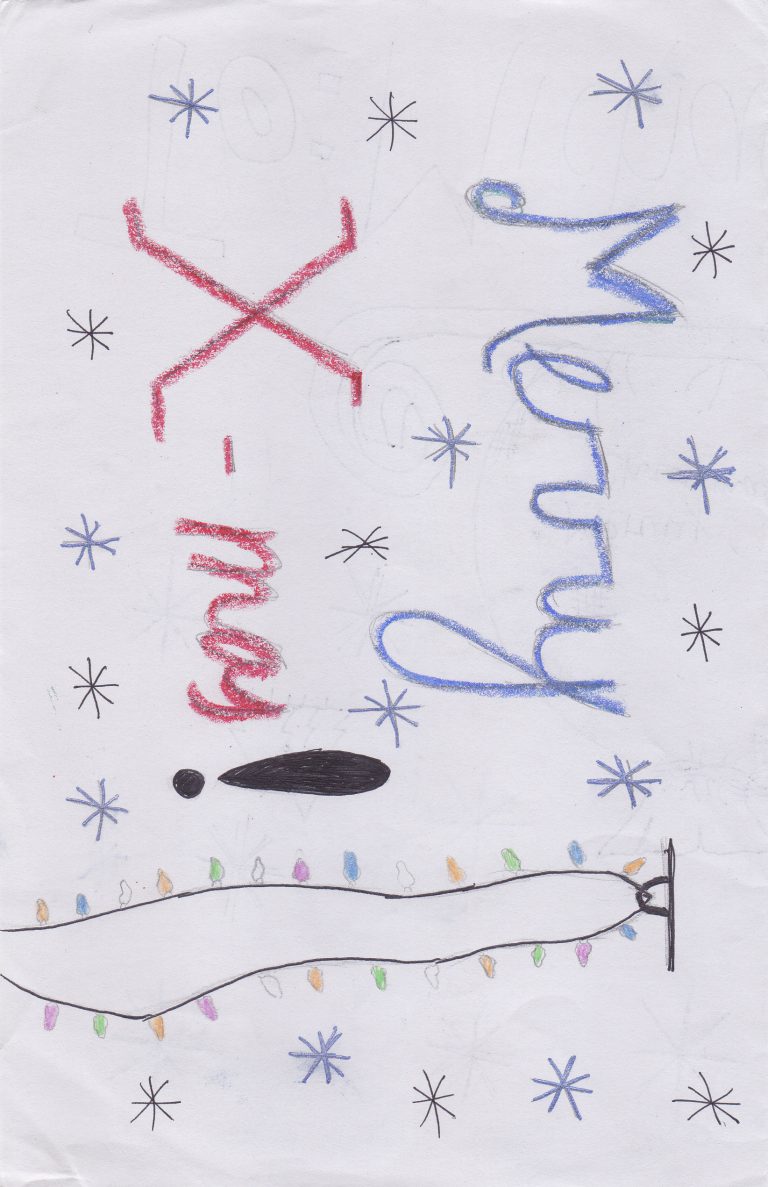 Merry
X-mas!